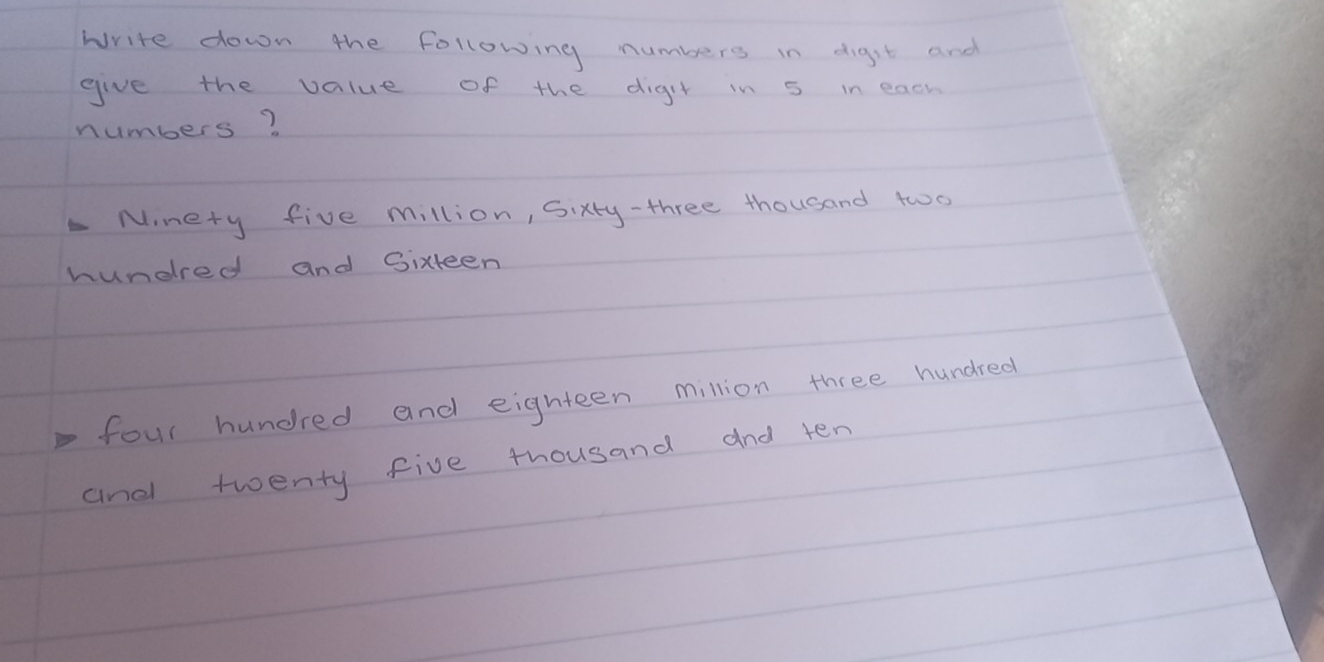 Write down the following numbers in digit and
give the value of the digit in 5 in each
numbers ?
Ninety five million, Sixty-three thousand two
hundred and Sixteen
four hundred and eighteen million three hundred
and twenty five thousand and ten